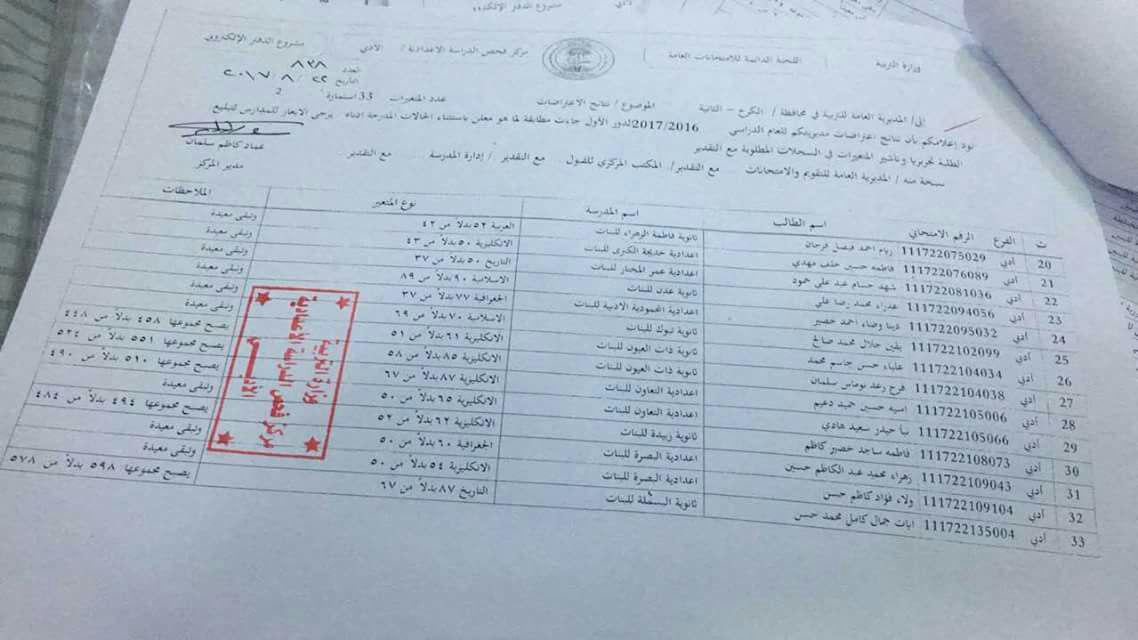 مشروع الدفتر الالكتروني
أدبي
وزارة التربية
اللجنة الدائمة للامتحانات العامة
مركز فحص الدراسة الاعدادية / الادبي
مشروع الدفتر الالكتروني
العدد ٨٣٨
التاريخ ٢٠١٧/٨/٢٢
إلى / المديرية العامة للتربية في محافظة / الكرخ – الثانية
الموضوع / نتائج الاعتراضات
عدد المتغيرات 33 استمارة
2
نود إعلامكم بأن نتائج اعتراضات مديريتكم للعام الدراسي 2017/2016 لدور الأول جاءت مطابقة لما هو معلن باستثناء الحالات المدرجة ادناه يرجى الايعاز للمدارس لتبليغ
الطلبة تحريريا وتأشير المتغيرات في السجلات المطلوبة مع التقدير
نسخة منه / المديرية العامة للتقويم والامتحانات مع التقدير / المكتب المركزي للقبول مع التقدير / إدارة المدرسة مع التقدير
عماد كاظم سلمان
مدير المركز
ت الفرع الرقم الامتحاني اسم الطالب اسم المدرسة نوع المتغير الملاحظات
20 أدبي 111722075029 ريام احمد فيصل فرحان ثانوية فاطمة الزهراء للبنات العربية ٥٢ بدلاً من ٤٢ وتبقى معيدة
21 أدبي 111722076089 فاطمه حسين خلف مهدي اعدادية خديجة الكبرى للبنات الانكليزية ٥٠ بدلاً من ٤٣ وتبقى معيدة
22 أدبي 111722081036 شهد حسام عبد علي حمود اعدادية عمر المختار للبنات التاريخ ٥٠ بدلاً من ٣٧ وتبقى معيدة
23 أدبي 111722094056 عذراء محمد رضا علي ثانوية عدن للبنات الاسلامية ٩٠ بدلاً من ٨٩ وتبقى معيدة
24 أدبي 111722095032 دينا وضاء احمد خضير اعدادية المحمودية الادبية للبنات الجغرافية ٧٧ بدلاً من ٣٧ وتبقى معيدة
25 أدبي 111722102099 يقين جلال محمد صالح ثانوية تبوك للبنات الاسلامية ٧٠ بدلاً من ٦٩ وتبقى معيدة
26 أدبي 111722104034 علياء حسن جاسم محمد ثانوية ذات العيون للبنات الانكليزية ٦١ بدلاً من ٥١ يصبح مجموعها ٤٥٨ بدلاً من ٤٤٨
27 أدبي 111722104038 فرح رعد نوماس سلمان ثانوية ذات العيون للبنات الانكليزية ٨٥ بدلاً من ٥٨ يصبح مجموعها ٥٥١ بدلاً من ٥٢٤
28 أدبي 111722105006 اسيه حسين حميد دعيم اعدادية التعاون للبنات الانكليزية ٨٧ بدلاً من ٦٧ يصبح مجموعها ٥١٠ بدلاً من ٤٩٠
29 أدبي 111722105066 نبأ حيدر سعيد هادي اعدادية التعاون للبنات الانكليزية ٦٥ بدلاً من ٥٠ وتبقى معيدة
30 أدبي 111722108073 فاطمه ساجد خضير كاظم ثانوية زبيدة للبنات الانكليزية ٦٢ بدلاً من ٥٢ يصبح مجموعها ٤٩٤ بدلاً من ٤٨٤
31 أدبي 111722109043 زهراء محمد عبد الكاظم حسين اعدادية البصرة للبنات الجغرافية ٦٠ بدلاً من ٥٠ وتبقى معيدة
32 أدبي 111722109104 ولاء فؤاد كاظم حسن اعدادية البصرة للبنات الانكليزية ٥٤ بدلاً من ٥٠ وتبقى معيدة
33 أدبي 111722135004 ايات جمال كامل محمد حسن ثانوية البسملة للبنات التاريخ ٨٧ بدلاً من ٦٧ يصبح مجموعها ٥٩٨ بدلاً من ٥٧٨
وزارة التربية
مركز فحص الدراسة الاعدادية
الادبي